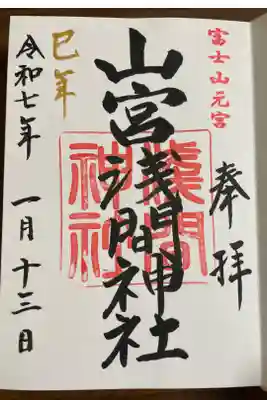 富士山元宮
奉拝
山宮浅間神社
浅間神社
巳年
令和七年 一月十三日